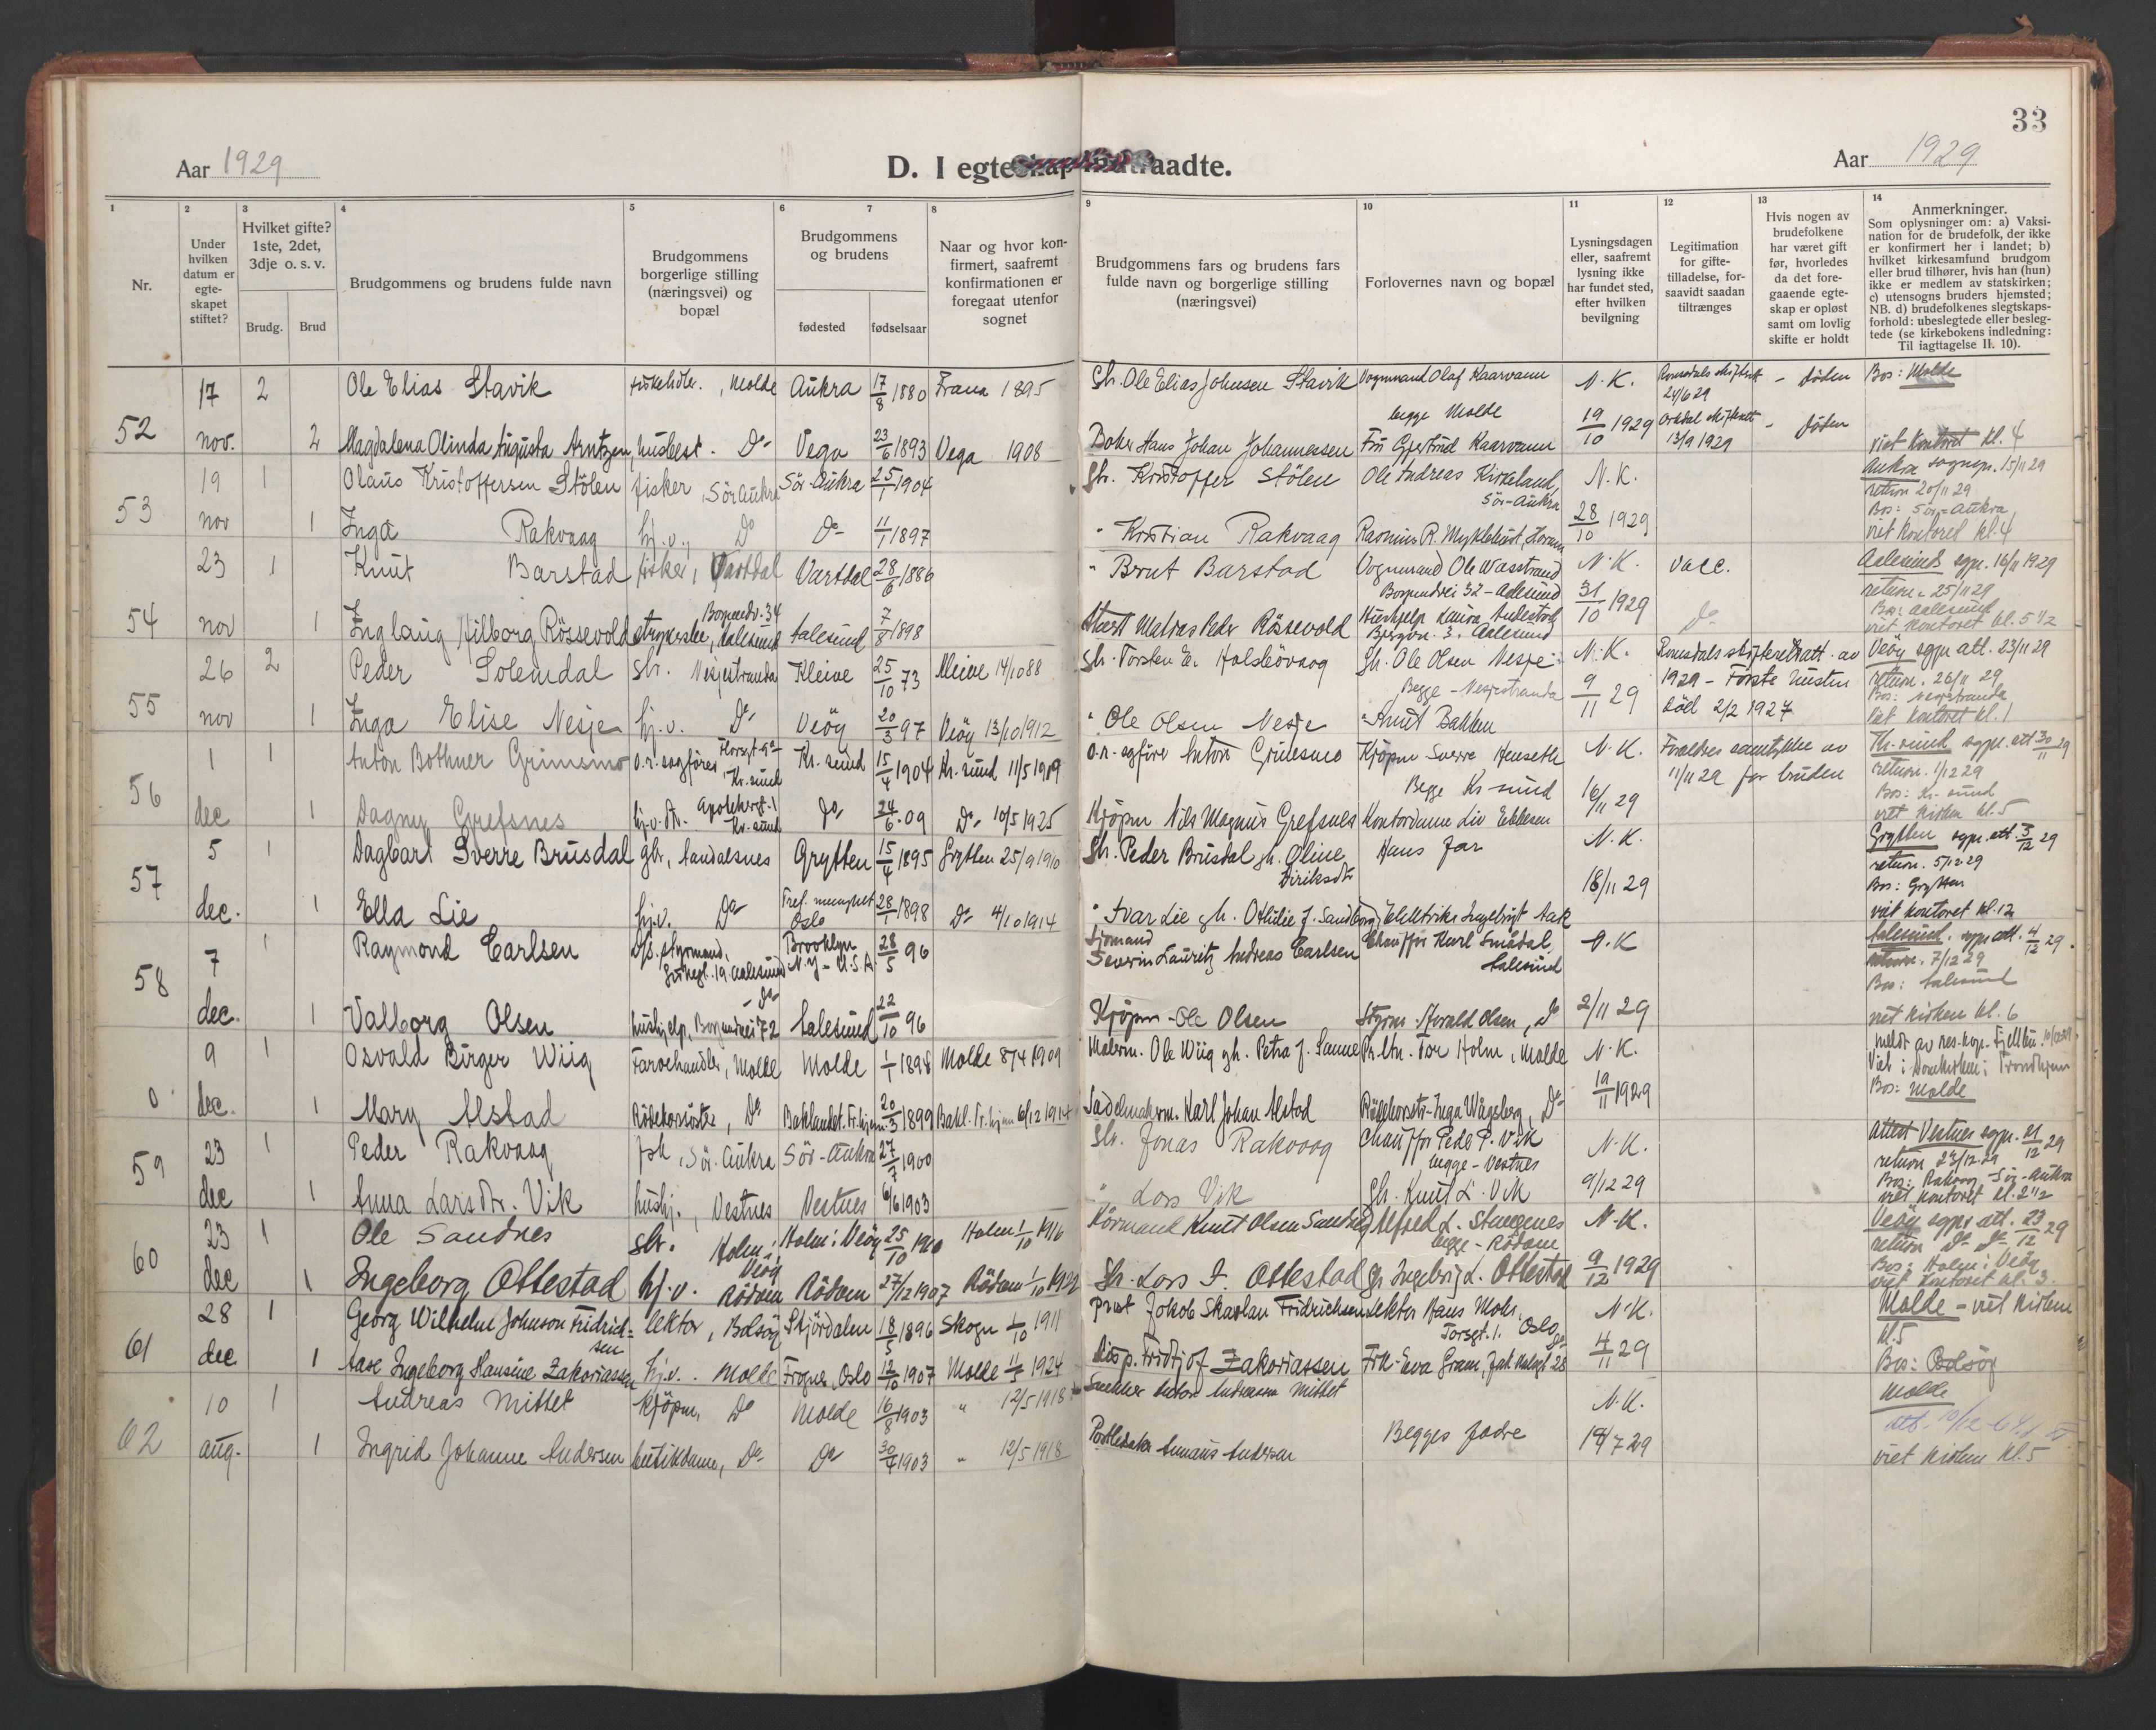 33
Aar 1929
D. I egteskap indtraadte.
Aar 1929
1 2 3 4 5 6 7 8 9 10 11 12 13 14
Nr.
Under hvilken datum er egteskapet stiftet?
Hvilket gifte? 1ste, 2det, 3dje o. s. v.
Brudg. Brud
Brudgommens og brudens fulde navn
Brudgommens borgerlige stilling (næringsvei) og bopæl
Brudgommens og brudens
fødested fødselsaar
Naar og hvor konfirmert, saafremt konfirmationen er foregaat utenfor sognet
Brudgommens fars og brudens fars fulde navn og borgerlige stilling (næringsvei)
Forlovernes navn og bopæl
Lysningsdagen eller, saafremt lysning ikke har fundet sted, efter hvilken bevilgning
Legitimation for giftetilladelse, forsaavidt saadan tiltrænges
Hvis nogen av brudefolkene har været gift før, hvorledes da det foregaaende egteskap er opløst samt om lovlig skifte er holdt
Anmerkninger.
Som oplysninger om: a) Vaksination for de brudefolk, der ikke er konfirmert her i landet; b) hvilket kirkesamfund brudgom eller brud tilhører, hvis han (hun) ikke er medlem av statskirken; c) utensogns bruders hjemsted; NB. d) brudefolkenes slegtskapsforhold: ubeslegtede eller beslegtede (se kirkebokens indledning: Til iagttagelse II. 10).
17 2 Ole Elias Stavik , Molde Aukra 17/8 1880 Fræna 1895 Gb. Ole Elias Johnsen Stavik Vognmand Olaf Kaarvann N. K. Romsdals skifterett 24/6 29 - døden Bos: Molde
begge Molde
52 nov. 2 Magdalena Olinda Augusta Arntzen, husbest. Do Vega 23/6 1893 Vega 1908 Hans Johan Johannessen Fru Gjertrud Kaarvann 19/10 1929 Orkdal skifterett 13/9 1929 - døden viet kontoret kl. 4
19 1 Olaus Kristoffersen Stölen fisker, Sör Aukra Sör-Aukra 25/1 1904 Gb. Kristoffer Stölen Ole Andreas Kirkeland, Sör-Aukra N. K. Aukra sognepr. 15/11 29
return 20/11 29
Bos: Sör-Aukra
53 nov 1 Inga Rakvaag hj.v., Do Do 11/1 1897 " Kristian Rakvaag Rasmus R. Myklebust, Haram 28/10 1929 viet kontoret kl. 4
23 1 Knut Barstad fisker, Vartdal Vartdal 28/6 1886 " Brut Barstad Vognmand Ole Wasstrand N. K. vacc. Aalesunds sgpr. 16/11 1929
Borgundvei 32 - Aalesund return. 25/11 29
Bos: Aalesund
54 nov 1 Inglaug Hilborg Rössevold Borgundv. 34 Aalesund Aalesund 7/8 1898 Matias Peder Rössevold Aalesund 31/10 1929 Do viet kontoret kl. 5 1/2
26 2 Peder Solemdal gbr. Nesjestranda Kleive 25/10 73 Kleive 14/10 88 gb. Torsten E. Gb. Ole Olsen Nesje N. K. Romsdals skifterett att. av Veöy sgpr att. 23/11 29
Begge - Nesjestranda 1929 - Förste hustru return. 26/11 29
Bos: Nesjestranda
55 nov 1 Inga Elise Nesje hj.v. Do Veöy 20/3 97 Veöy 13/10 1912 " Ole Olsen Nesje " Knut Bakken 9/11 29 död 2/2 1927 viet kontoret kl. 1
1 1 Anton Bothner Grimsmo o.r. sagförer Kr.sund Kr. sund 15/4 1904 Kr. sund 11/5 1919 o.r. sagförer Anton Grimsmo Kjöpm Sverre Henseth N. K. Foreldres samtykke av Kr.sund sogpr. att 30/11 29
Begge Kr sund 11/11 29 for bruden return. 1/12 29
Bos: Kr. sund
56 dec 1 Dagny Grefsnes hj.v. Kr. sund Do 24/6 .09 Do 10/5 1925 Kjöpm Nils Magnus Grefsnes Kontordame Liv Ebbesen 16/11 29 viet kirken kl. 5
5 1 Dagbart Sverre Brusdal gbr, Aandalsnes Grytten 15/4 1895 Grytten 25/9 1910 Gb. Peder Brusdal gh. Oline Diriksdtr Hans far N. K. Grytten sgpr. att. 3/12 29
return. 5/12 29
Bos: Grytten
57 dec. 1 Ella Lie hj.v. Do Oslo 28/1 1898 Do 4/10 1914 " Ivar Lie gh. Othilie J. Sandberg Elektriker Ingebrigt Aak 18/11 29 viet kontoret kl. 12
7 1 Raymond Carlsen styrmand, 19 Aalesund Brooklyn N.Y - U.S.A 28/5 96 Sjömand Severin Lauritz Andreas Carlsen Chaufför Karl Smådal, Aalesund N. K Aalesund. sgpr att. 4/12 29.
return. 7/12 29
Bos: Aalesund
58 dec. 1 Valborg Olsen hushjelp, Borgundvei 72 - Do Aalesund 22/10 96 Kjöpm - Ole Olsen Styrm. Harald Olsen, Do 2/11 29 viet kirken kl. 6
9 1 Osvald Birger Wiig Farvehandler, Molde Molde 1/1 1898 Molde 1909 Malerm. Ole Wiig gh. Petra J. Sanne Pr.ltn. Tor Holm, Molde N. K. Viet i Domkirken i Trondhjem
0 dec. 1 Mary Alstad Rödekorssöster, Do Baklandet. Tr.hjem. 20/3 1899 Bakl. Tr. hjem 6/12 1914 Sadelmakerm. Karl Johan Alstad Inga Wågsberg, Do 19/11 1929 Bos: Molde
23 1 Peder Rakvaag fsk, Sör. Aukra Sör-Aukra 27/7 1900 Gb. Jonas Rakvaag Chaufför Peder P. Vik N. K. attest Vestnes sgpr. 21/12 29
begge - Vestnes return 23/12 29
Bos: Rakvaag - Sör-Aukra
59 dec 1 Anna Larsdtr. Vik hushj., Vestnes Vestnes 6/6 1903 " Lars Vik Gb. Knut L. Vik 9/12 29 viet kontoret kl. 2 1/2
23 1 Ole Sandnes gbr. Holm i Veöy Holm i Veöy 25/10 1900 Holm 1/10 1916 Kårmand Knut Olsen Sandnes Alfred L. Stengenes N. K. Veöy sgpr att. 23/12 29
begge - Rödven return Do Do
Bos: Holm i Veöy
60 dec 1 Ingeborg Ottestad hj.v. Rödven Rödven 27/12 1907 Rödven 1/10 1922 Gb. Lars I. Ottestad Gb Ingebrigt L. Ottestad 9/12 1929 viet kontoret kl. 3.
28 1 Georg Wilhelm Johnson Fridrichsen lektor, Bolsöy Stjördalen 18/5 1896 Skogn 1/10 1911 prost Jakob Skavlan Fridrichsen lektor Hans Mohr, Torsgt. 1. Oslo N. K. Molde - viet kirken
kl. 5
61 dec 1 Aase Ingeborg Hansine Zakariassen hj.v. Molde Frogner, Oslo 12/10 1907 Molde 11/5 1924 disp. Fridtjof Zakariassen Frk. Eva Gram, 28 4/11 29 Bos: Bolsöy
10 1 Andreas Mittet Kjöpm, Do Molde 16/8 1903 " 12/5 1918 Snekker Anton Andreassen Mittet N. K. Molde
62 aug. 1 Ingrid Johanne Andersen butikdame, Do Do 30/4 1903 " 12/5 1918 Andersen Begges fedre 19/7 29 viet kirken kl. 5